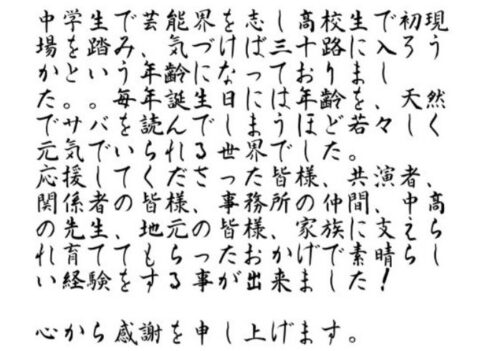 中学生で芸能界を志し高校生で初現
場を踏み、気づけば三十路に入ろう
かという年齢になっておりまし
た。。毎年誕生日には年齢を、天然
でサバを読んでしまうほど若々しく
元気でいられる世界でした。
応援してくださった皆様、共演者、
関係者の皆様、事務所の仲間、中高
の先生、地元の皆様、家族に支えら
れ育ててもらったおかげで素晴らし
い経験をする事が出来ました!
心から感謝を申し上げます。